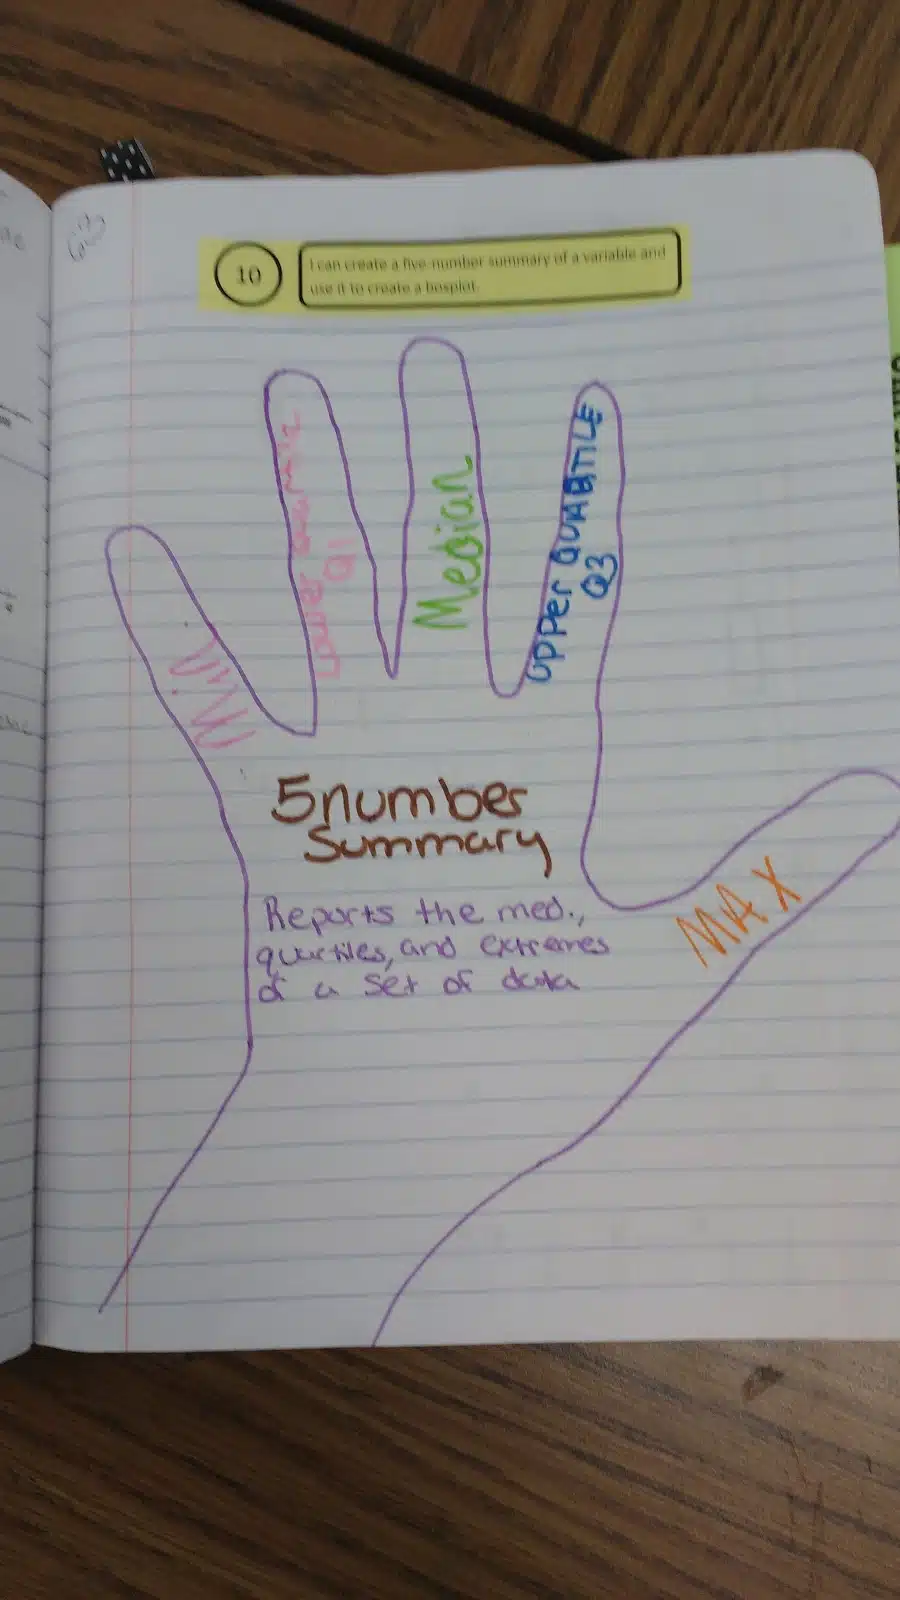 10
I can create a five-number summary of a variable and
use it to create a boxplot.
Min
Lower quartile
Q1
Median
UPPer QUARTILE
Q3
MAX
5 number
Summary
Reports the med.,
quartiles, and extremes
of a set of data